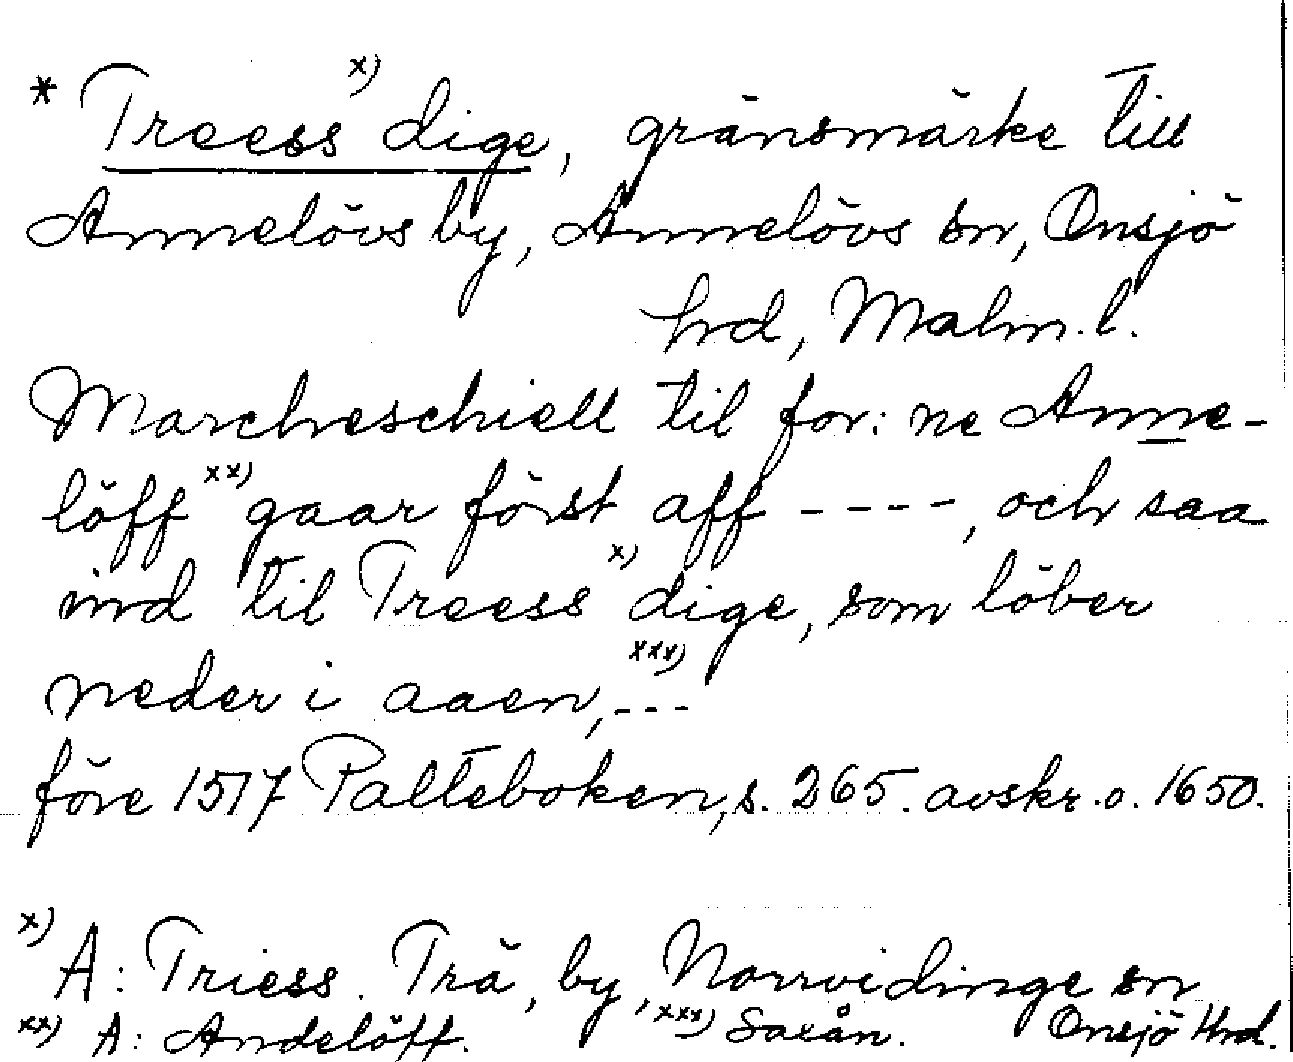 * Treess x) dige, gränsmärke till
Annelövs by, Annelövs sn, Onsjö
hrd, Malm. l.
Marcheschiell til for: ne Anne-
löff xx) gaar först aff ----, och saa
ind til Treess x) dige, som löber
neder i aaen, xxx) ---
före 1517 Palteboken, s. 265. avskr. o. 1650.
x) A: Triess. Trä, by, Norrvidinge sn
xx) A: Andelöff. xxx) Saxån. Onsjö Hrd.